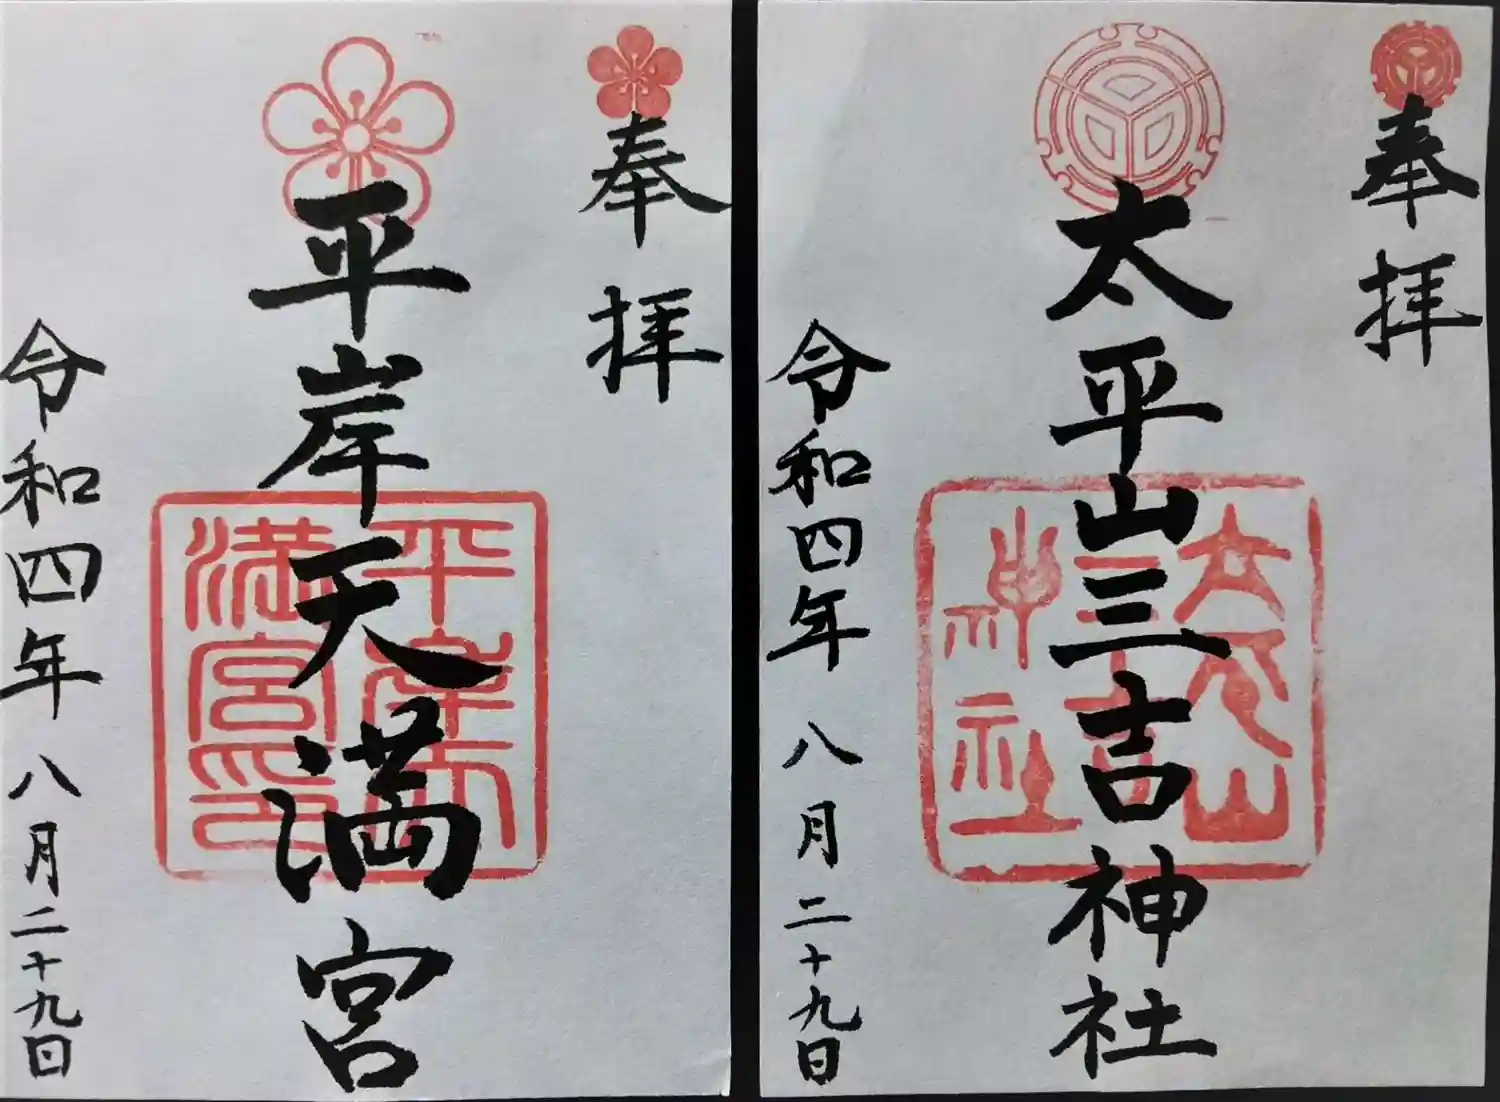 奉拝
平岸天満宮
平岸天
満宮印
令和四年 八月二十九日
奉拝
太平山三吉神社
太平山
三吉
神社
令和四年 八月二十九日